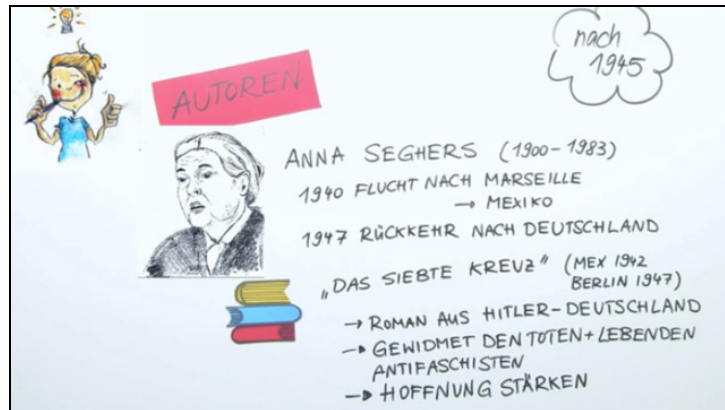 nach
1945
AUTOREN
ANNA SEGHERS (1900-1983)
1940 FLUCHT NACH MARSEILLE
→ MEXIKO
1947 RÜCKKEHR NACH DEUTSCHLAND
„DAS SIEBTE KREUZ" (MEX 1942
BERLIN 1947)
→ ROMAN AUS HITLER-DEUTSCHLAND
→ GEWIDMET DEN TOTEN + LEBENDEN
ANTIFASCHISTEN
→ HOFFNUNG STÄRKEN